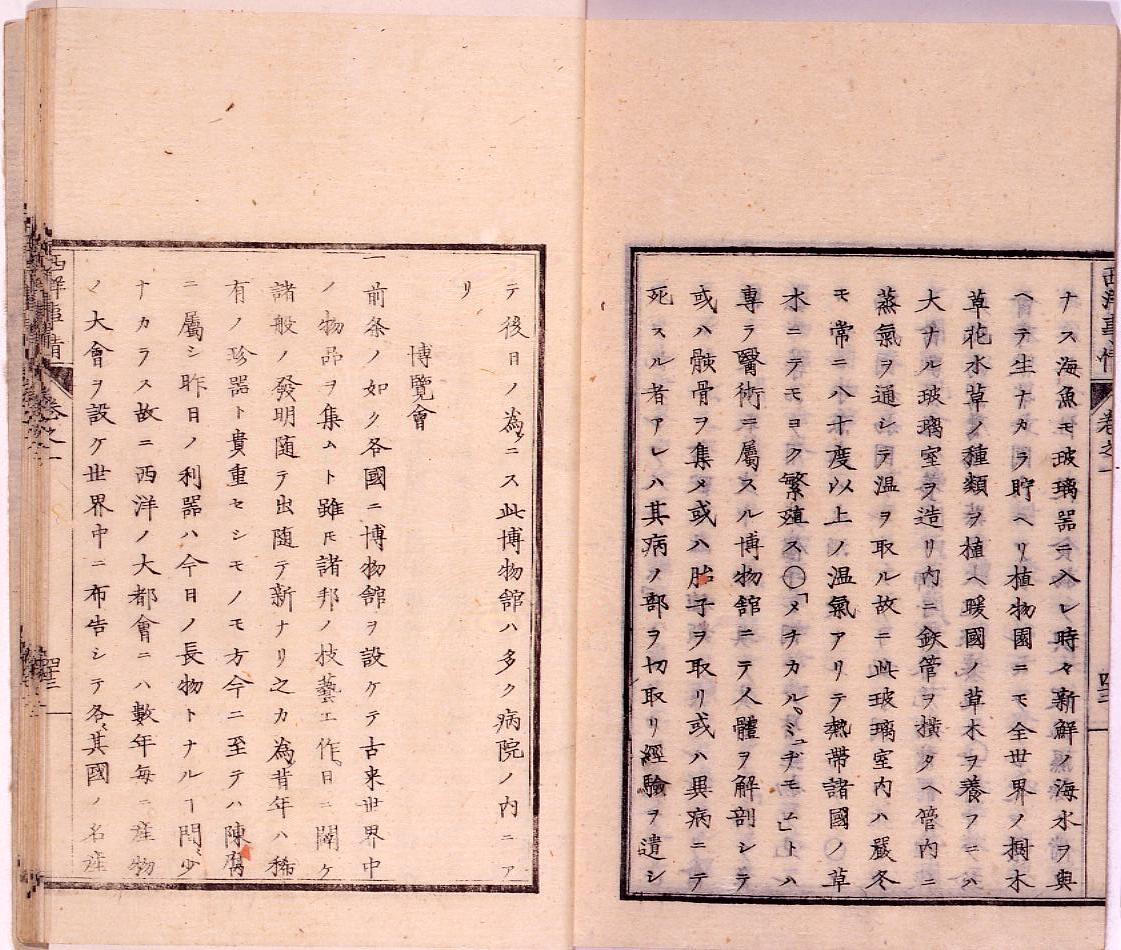 西洋事情 巻之一 四十二
ナス海魚モ玻璃器ニ入レ時々新鮮ノ海水ヲ與
ヘテ生ナカラ貯ヘリ植物園ニモ全世界ノ樹木
草花水草ノ種類ヲ植ヘ暖國ノ草木ヲ養フニハ
大ナル玻璃室ヲ造リ内ニ鉄管ヲ横タヘ管内ニ
蒸氣ヲ通シテ温ヲ取ル故ニ此玻璃室内ハ嚴冬
モ常ニ八十度以上ノ温氣アリテ熱帯諸國ノ草
木ニテモヨク繁殖ス○「メヂカル、ミュヂモュム」トハ
專ラ醫術ニ屬スル博物館ニテ人體ヲ解剖シテ
或ハ骸骨ヲ集メ或ハ胎子ヲ取リ或ハ異病ニテ
死スル者アレハ其病ノ部ヲ切取リ經驗ヲ遺シ
テ後日ノ為ニス此博物館ハ多ク病院ノ内ニア
リ
博覽會
一前条ノ如ク各國ニ博物館ヲ設ケテ古来世界中
ノ物品ヲ集ムト雖𪜈諸邦ノ技藝工作、日ニ闢ケ
諸般ノ發明隨テ出隨テ新ナリ之カ為、昔年ハ稀
有ノ珍器ト貴重セシモノモ方今ニ至テハ陳腐
ニ屬シ昨日ノ利器ハ今日ノ長物トナルヿ間、少
ナカラス故ニ西洋ノ大都會ニハ數年毎ニ産物
ノ大會ヲ設ケ世界中ニ布告シテ各、其國ノ名産
西洋事情 巻之一 四十二